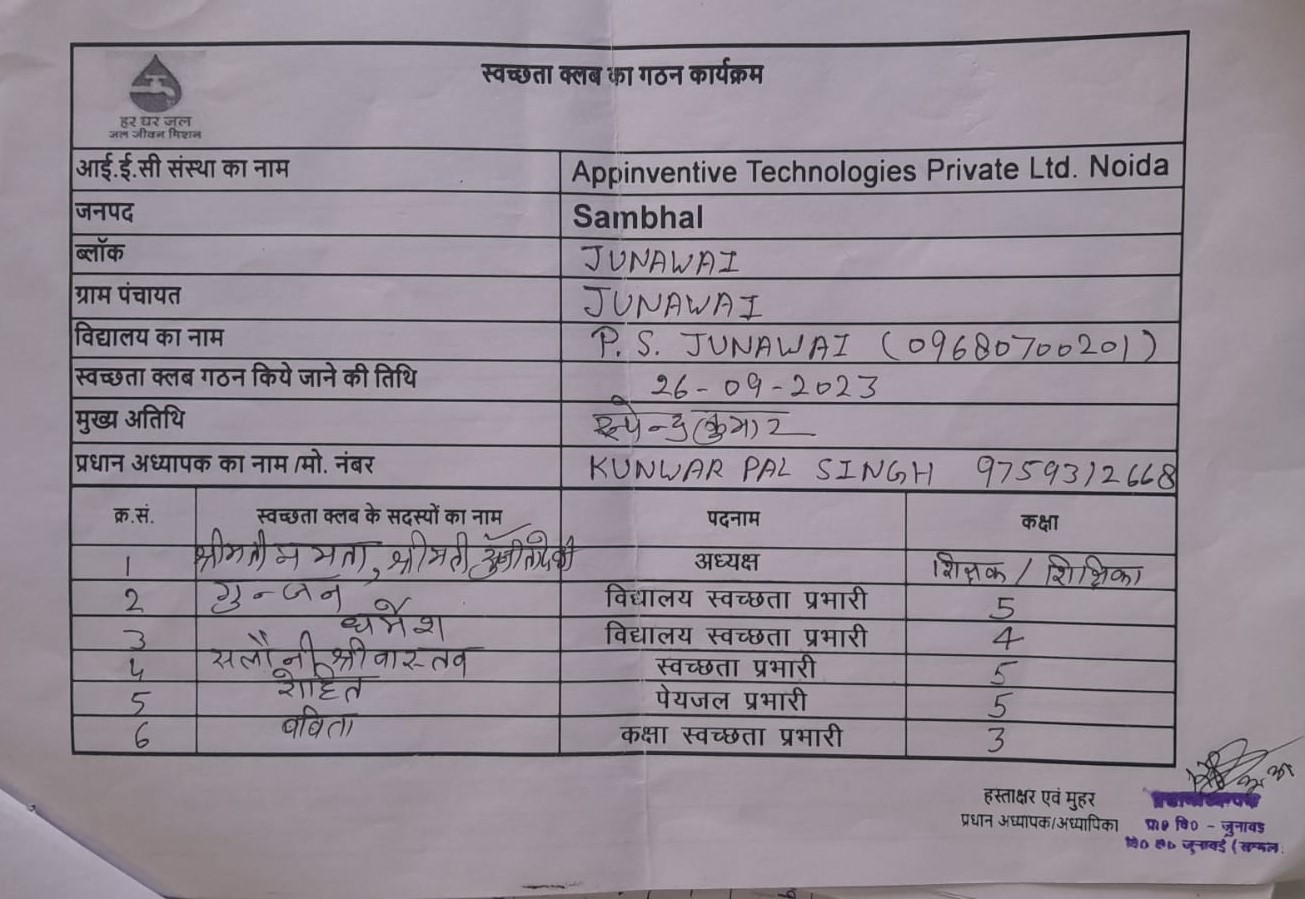 स्वच्छता क्लब का गठन कार्यक्रम
हर घर जल
जल जीवन मिशन
आई.ई.सी संस्था का नाम Appinventive Technologies Private Ltd. Noida
जनपद Sambhal
ब्लॉक JUNAWAI
ग्राम पंचायत JUNAWAI
विद्यालय का नाम P. S. JUNAWAI (09680700201)
स्वच्छता क्लब गठन किये जाने की तिथि 26-09-2023
मुख्य अतिथि कुमार
प्रधान अध्यापक का नाम /मो. नंबर KUNWAR PAL SINGH 9759312668
क्र.सं. स्वच्छता क्लब के सदस्यों का नाम पदनाम कक्षा
1 श्रीमती ममता, श्रीमती अध्यक्ष शिक्षक / शिक्षिका
2 गुन्जन विद्यालय स्वच्छता प्रभारी 5
3 धर्मेश विद्यालय स्वच्छता प्रभारी 4
4 सलौनी श्रीवास्तव स्वच्छता प्रभारी 5
5 रोहित पेयजल प्रभारी 5
6 बबिता कक्षा स्वच्छता प्रभारी 3
हस्ताक्षर एवं मुहर
प्रधान अध्यापक/अध्यापिका
प्रा० वि० - जुनावई
वि० क्षे० जुनावई (सम्भल